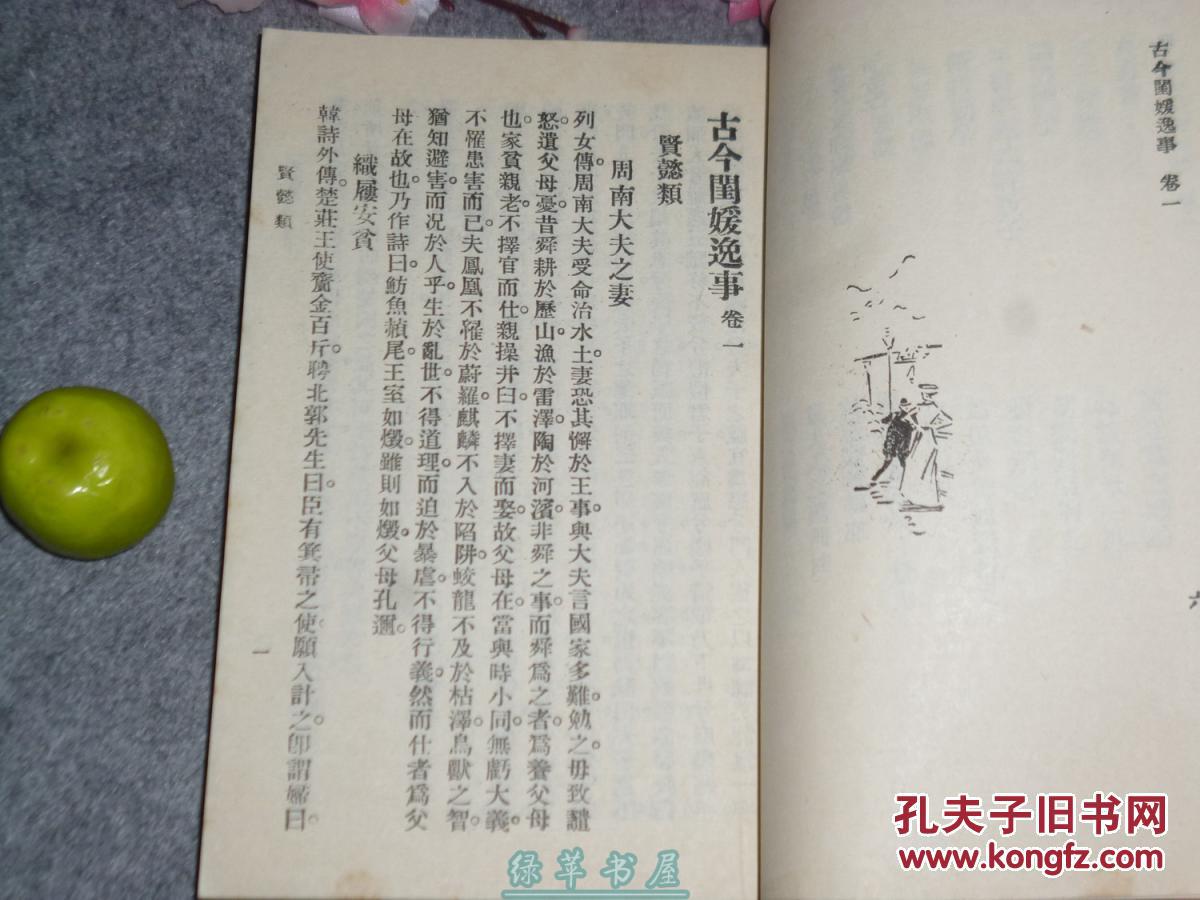 古今閨媛逸事 卷一
六
古今閨媛逸事 卷一
賢懿類
周南大夫之妻
列女傳。周南大夫受命治水土。妻恐其懈於王事。與大夫言國家多難。勉之。毋致譴
怒。遺父母憂。昔舜耕於歷山。漁於雷澤。陶於河濱。非舜之事。而舜爲之者。爲養父母
也。家貧親老。不擇官而仕。親操井臼。不擇妻而娶。故父母在。當與時小同。無虧大義。
不罹患害而已。夫鳳凰不罹於蔚羅。麒麟不入於陷阱。蛟龍不及於枯澤。鳥獸之智。
猶知避害。而况於人乎。生於亂世。不得道理。而迫於暴虐。不得行義。然而仕者。爲父
母在故也。乃作詩曰。魴魚赬尾。王室如燬。雖則如燬。父母孔邇。
織屨安貧
韓詩外傳。楚莊王使齎金百斤。聘北郭先生。曰。臣有箕帚之使。願入計之。卽謂婦曰。
賢懿類
一
孔夫子旧书网
www.kongfz.com
绿苹书屋